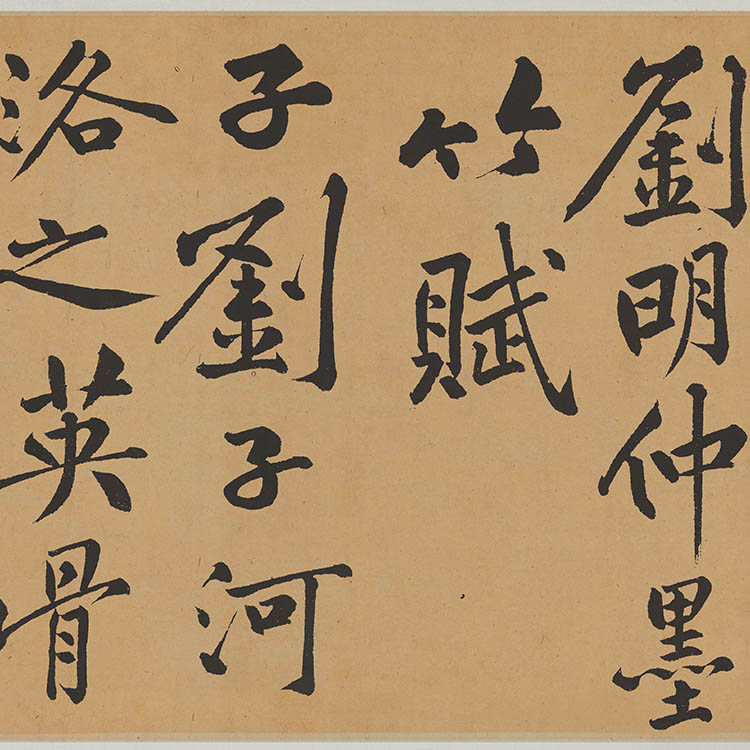 劉明仲墨
竹賦
子劉子河
洛之英骨